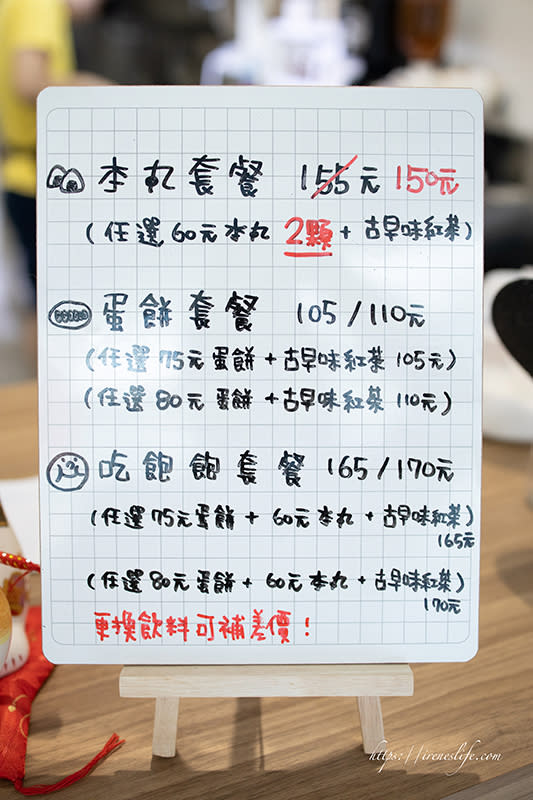 本丸套餐 155元 150元
(任選60元本丸 2顆 + 古早味紅茶)
蛋餅套餐 105/110元
(任選75元蛋餅+古早味紅茶 105元)
(任選80元蛋餅+古早味紅茶 110元)
吃飽飽套餐 165/170元
(任選75元蛋餅 + 60元本丸 + 古早味紅茶)
165元
(任選80元蛋餅 + 60元本丸 + 古早味紅茶)
170元
更換飲料可補差價!
https://ireneslife.com